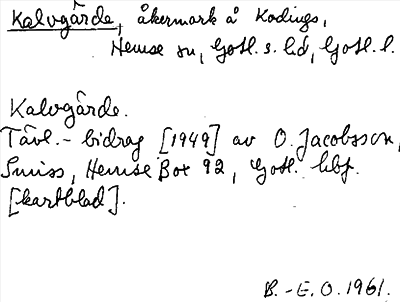 Kalvgärde, åkermark å Kodings,
Hemse sn, Gotl. s. hd, Gotl. l.
Kalvgärde.
Tävl.-bidrag [1949] av O. Jacobsson,
Smiss, Hemse Box 92, Gotl.
[kartblad].
B.-E. O. 1961.